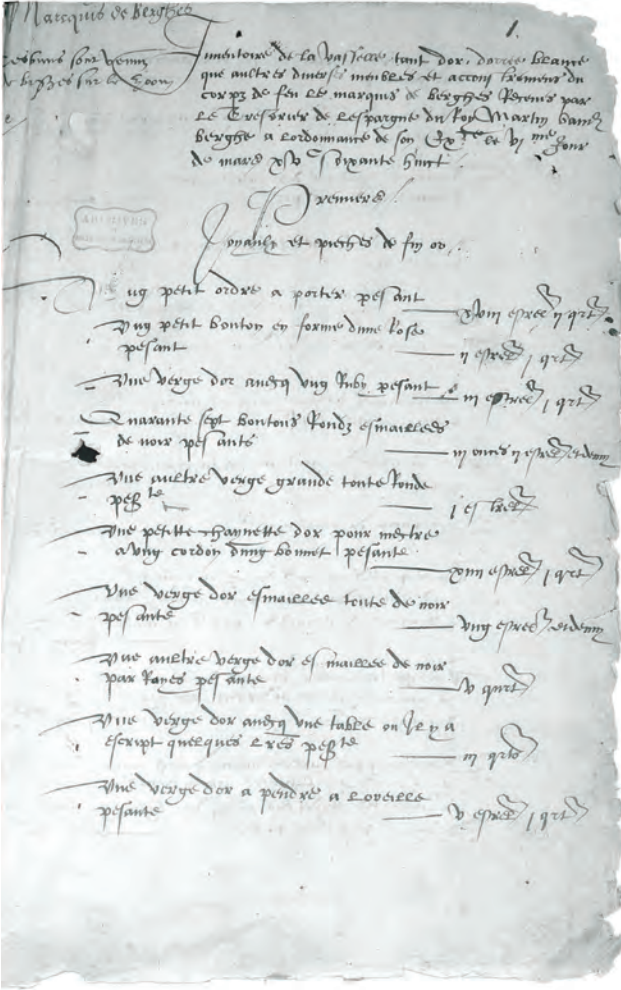 Marcquis de Berghes
1.
Inventoire de la vasselle tant dor, doree blance
que aultres diverses meubles et accoustremens du
corpz de feu le marquis de Berghes Receuz par
le Tresorier de lespargne du Roy Martin vanden
berghe a lordonnance de son Ex.ce le vj me Jour
de mars xvc soixante huict.
Premiers
Joyaulx et pieches de fin or.
ung petit ordre a porter pesant xviij estrel ij qrt
Vng petit bouton en forme dune Rose
pesant ij estrel j qrt
Vne verge dor avecq vng Ruby pesant iij estrel j qrt
Quarante sept boutons Rondz esmaillees
de noir pesants iij onces ij estrel et demy
Vne aultre verge grande toute Ronde
pesste j estrel
Vne petitte chaynette dor pour mectre
a vng cordon dung bonnet pesante xiiij estrel j qrt
Vne verge dor esmaillee toute de noir
pesante vng estrel et demy
Vne aultre verge dor esmaillee de noir
par Rayes pesante v qurt
Vne verge dor avecq vne table ou Il y a
escript quelques lres pesste iij qrts
Vne verge dor a pendre a loreille
pesante v estrel j qrt